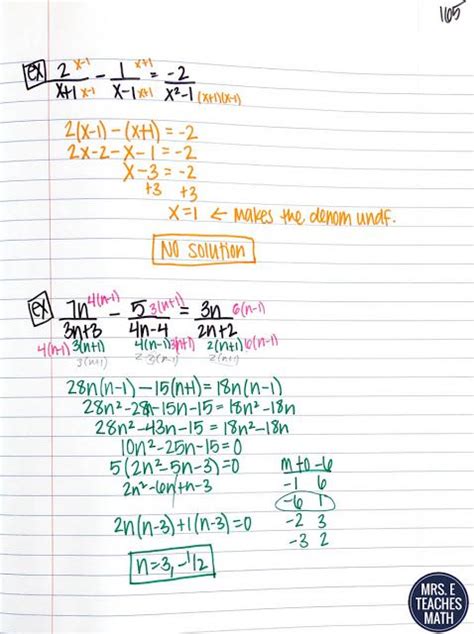 165
ex 2/(x+1) x-1/x-1 - 1/(x-1) x+1/x+1 = -2/(x²-1) (x+1)(x-1)
2(x-1) - (x+1) = -2
2x-2-x-1 = -2
x-3 = -2
+3 +3
x=1 ← makes the denom undf.
NO solution
ex 7n/(3n+3) 4(n-1) - 5/(4n-4) 3(n+1) = 3n/(2n+2) 6(n-1)
4(n-1) 3(n+1) 4(n-1) 3(n+1) 2(n+1) 6(n-1)
28n(n-1) - 15(n+1) = 18n(n-1)
28n²-28n-15n-15 = 18n²-18n
28n²-43n-15 = 18n²-18n
10n²-25n-15=0
5(2n²-5n-3)=0
2n²-6n+n-3
2n(n-3)+1(n-3)=0
n=3, -1/2
m to -6
-1 6
-6 1
-2 3
-3 2
MRS. E
TEACHES
MATH